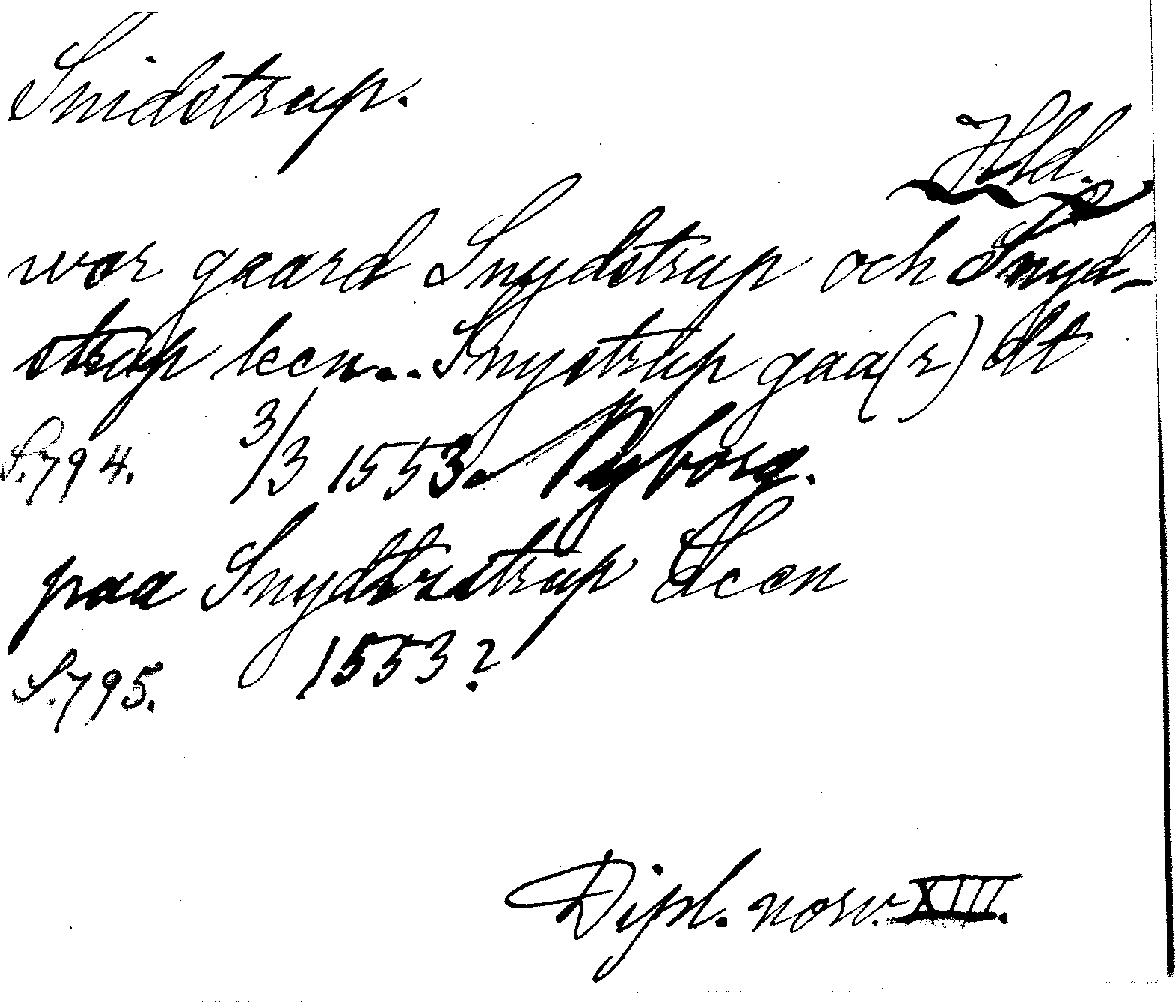 Snidstrup.
Hld.
wor gaard Snydstrup och Snyd-
strup leen... Snystrup gaa(r) dt
S. 794. 3/3 1553. Nyborg.
paa Snydtzstrup Leen
S. 795. 1553?
Dipl. norv. XIII.